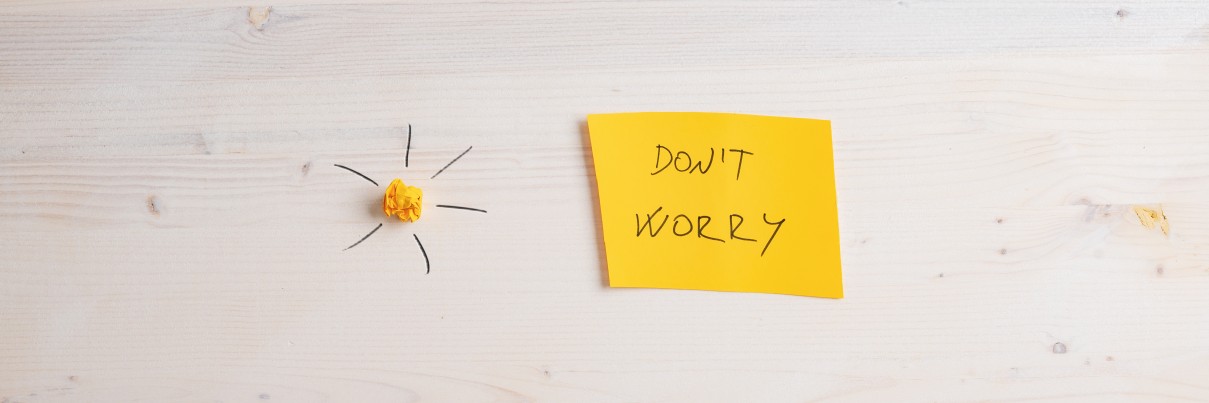 DON'T
WORRY